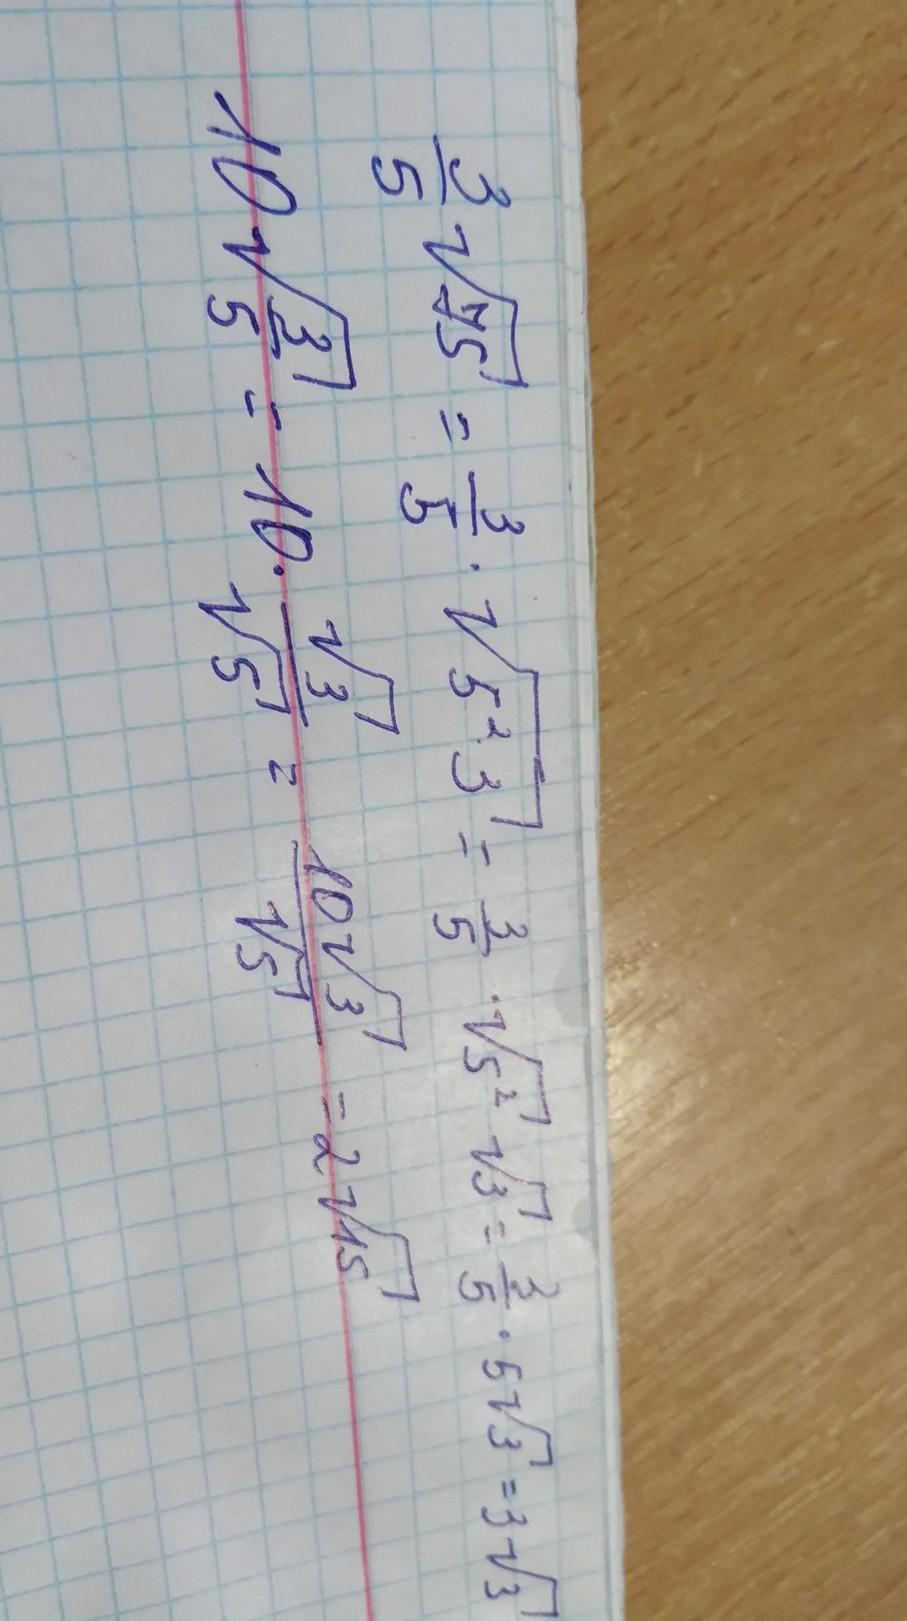 3/5 √75 = 3/5 · √(5² · 3) = 3/5 · √5² √3 = 3/5 · 5√3 = 3√3
10 √(3/5) = 10 · √3/√5 = 10√3/√5 = 2√15